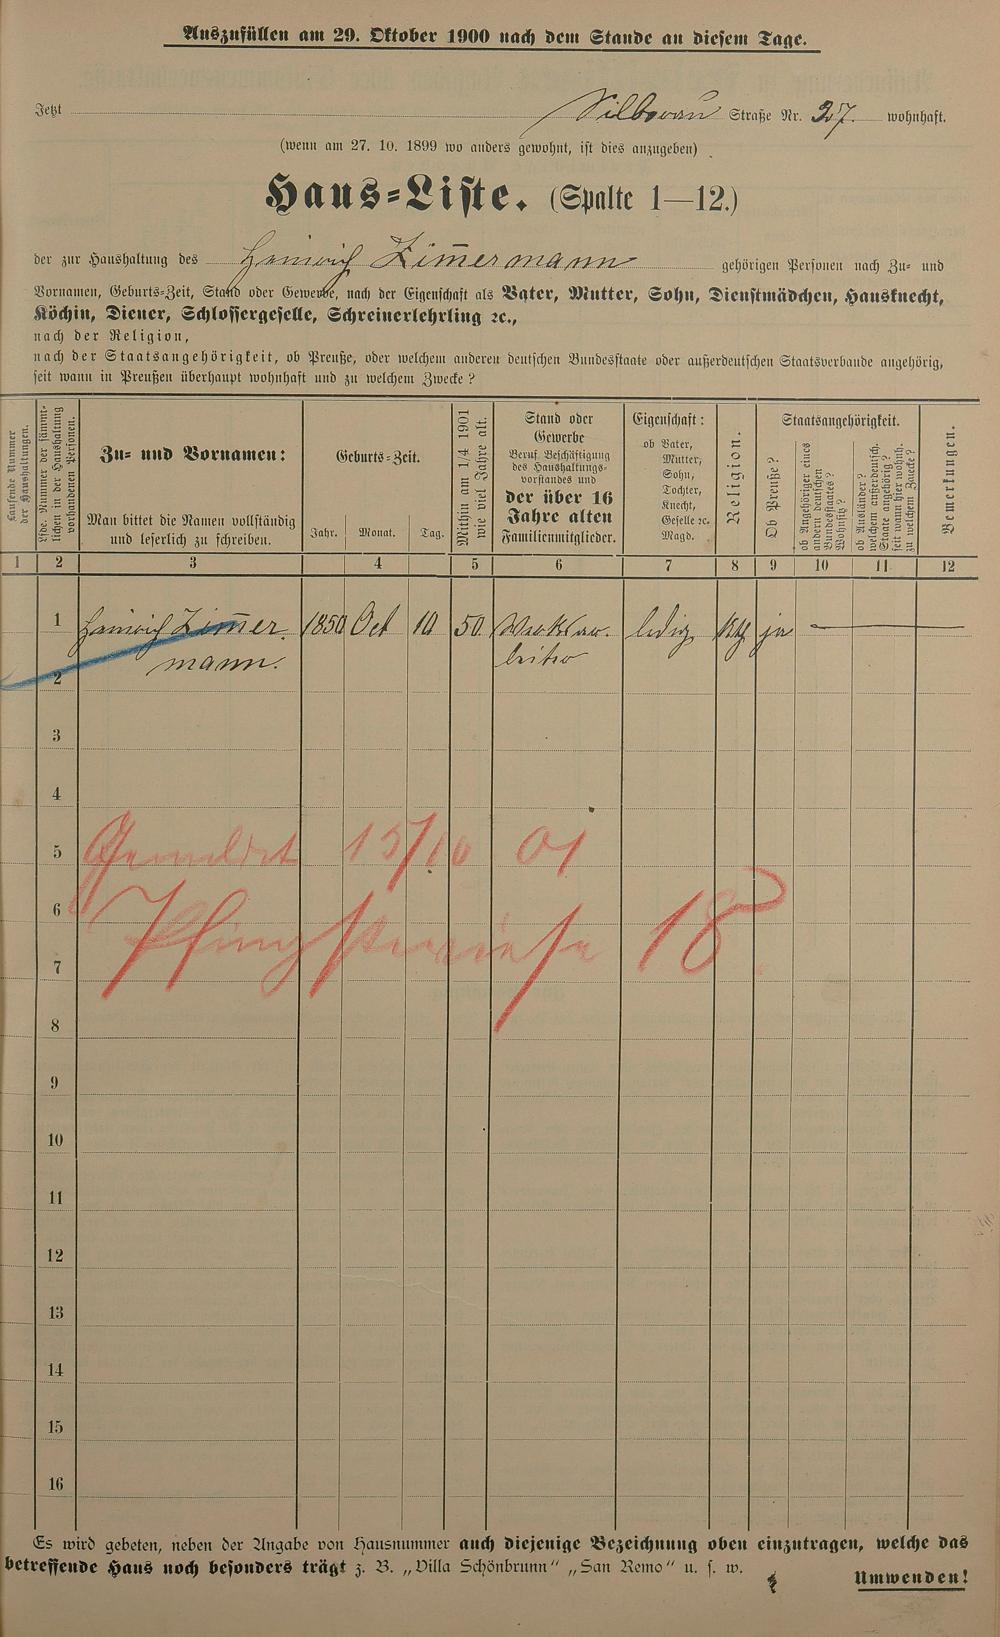 Auszufüllen am 29. Oktober 1900 nach dem Stande an diesem Tage.
Jetzt Silberau Straße Nr. 27. wohnhaft.
(wenn am 27. 10. 1899 wo anders gewohnt, ist dies anzugeben)
Haus=Liste. (Spalte 1—12.)
der zur Haushaltung des Heinrich Zimmermann gehörigen Personen nach Zu= und
Vornamen, Geburts=Zeit, Stand oder Gewerbe, nach der Eigenschaft als Vater, Mutter, Sohn, Dienstmädchen, Hausknecht,
Köchin, Diener, Schlossergeselle, Schreinerlehrling ꝛc.,
nach der Religion,
nach der Staatsangehörigkeit, ob Preuße, oder welchem anderen deutschen Bundesstaate oder außerdeutschen Staatsverbande angehörig,
seit wann in Preußen überhaupt wohnhaft und zu welchem Zwecke?
Laufende Nummer
der Haushaltungen.
Lfde. Nummer der sämmt=
lichen in der Haushaltung
vorhandenen Personen.
Zu= und Vornamen:
Man bittet die Namen vollständig
und leserlich zu schreiben.
Geburts=Zeit.
Jahr. Monat. Tag.
Mithin am 1/4 1901
wie viel Jahre alt.
Stand oder
Gewerbe
Beruf, Beschäftigung
des Haushaltungs=
vorstandes und
der über 16
Jahre alten
Familienmitglieder.
Eigenschaft:
ob Vater,
Mutter,
Sohn,
Tochter,
Knecht,
Geselle ꝛc.
Magd.
Religion.
Staatsangehörigkeit.
Ob Preuße?
ob Angehöriger eines
andern deutschen
Bundesstaates?
Wohnsitz?
ob Ausländer?
welchem außerdeutsch.
Staate angehörig?
seit wann hier wohnh.
zu welchem Zwecke?
Bemerkungen.
1 2 3 4 5 6 7 8 9 10 11 12
1 Heinrich Zimmer= 1850 Oct 10 50 Werksar= ledig kth ja
mann. beiter
2
3
4
5 Gemeldet 15/10 01
6 Pfingstwiese 18
7
8
9
10
11
12
13
14
15
16
Es wird gebeten, neben der Angabe von Hausnummer auch diejenige Bezeichnung oben einzutragen, welche das
betreffende Haus noch besonders trägt z. B. „Villa Schönbrunn“ „San Remo“ u. s. w.
Umwenden!